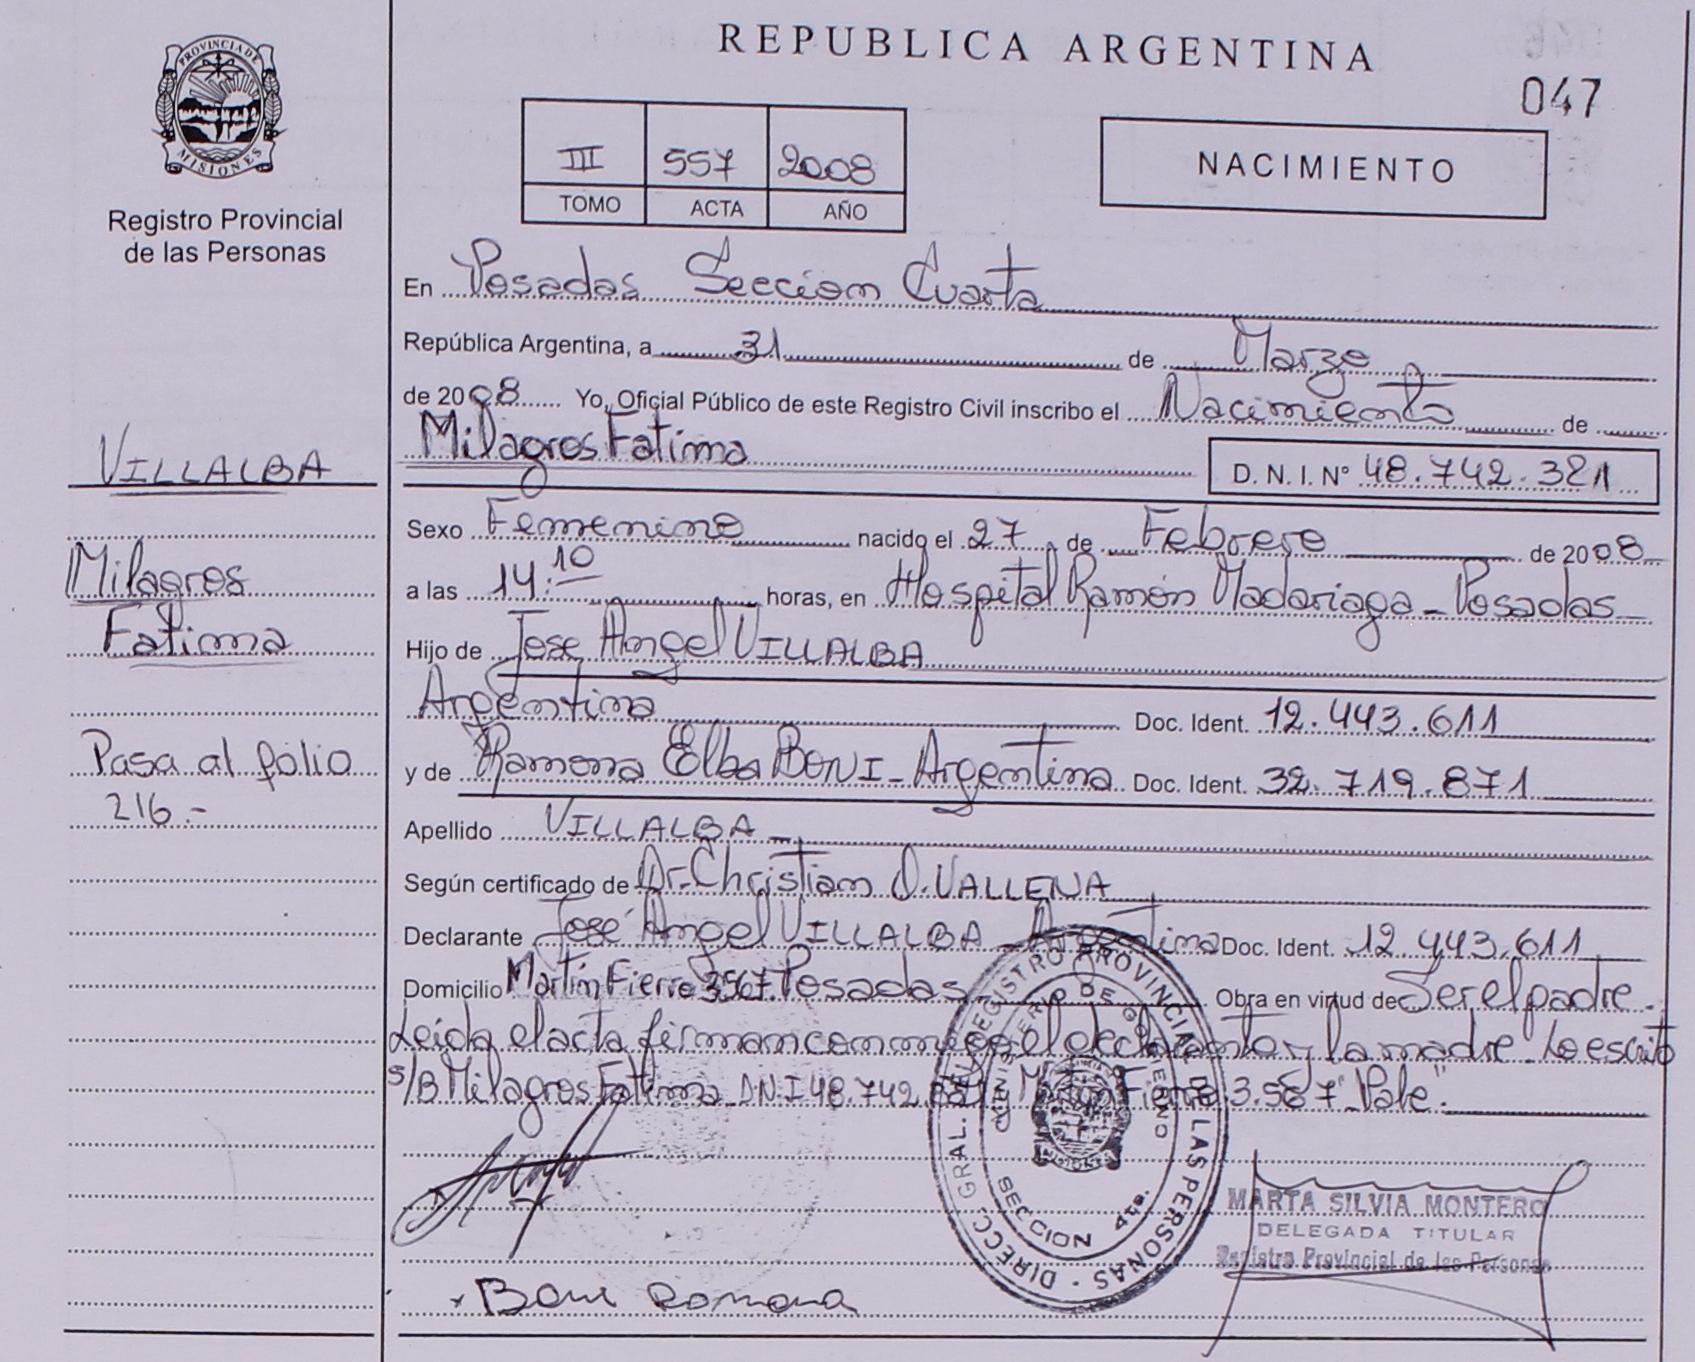 PROVINCIA DE
MISIONES
Registro Provincial
de las Personas
VILLALBA
Milagros
Fatima
Pasa al folio
216.-
REPUBLICA ARGENTINA
047
III 557 2008
TOMO ACTA AÑO
NACIMIENTO
En Posadas Seccion Cuarta
República Argentina, a 31 de Marzo
de 2008 Yo, Oficial Público de este Registro Civil inscribo el Nacimiento de
Milagros Fatima D. N. I. Nº 48.742.321
Sexo Femenino nacido el 27 de Febrero de 2008
a las 14:10 horas, en Hospital Ramón Madariaga - Posadas
Hijo de Jose Angel VILLALBA
Argentina Doc. Ident. 12.443.611
y de Ramona Elba BONI - Argentina Doc. Ident. 32.719.871
Apellido VILLALBA
Según certificado de Dr. Christian D. VALLENA
Declarante José Angel VILLALBA - Argentina Doc. Ident. 12.443.611
Domicilio Martín Fierro 3567. Posadas Obra en virtud de Ser el padre.
Leida el acta firman conmigo el declarante y la madre. Lo escrito
s/B Milagros Fatima DNI 48.742. Fierro 3.567 "Vale".
DIRECC. GRAL. DEL REGISTRO PROVINCIAL DE LAS PERSONAS
MINISTERIO DE GOBIERNO
SECCION 4ta.
MARTA SILVIA MONTERO
DELEGADA TITULAR
Registro Provincial de las Personas
Boni Romona